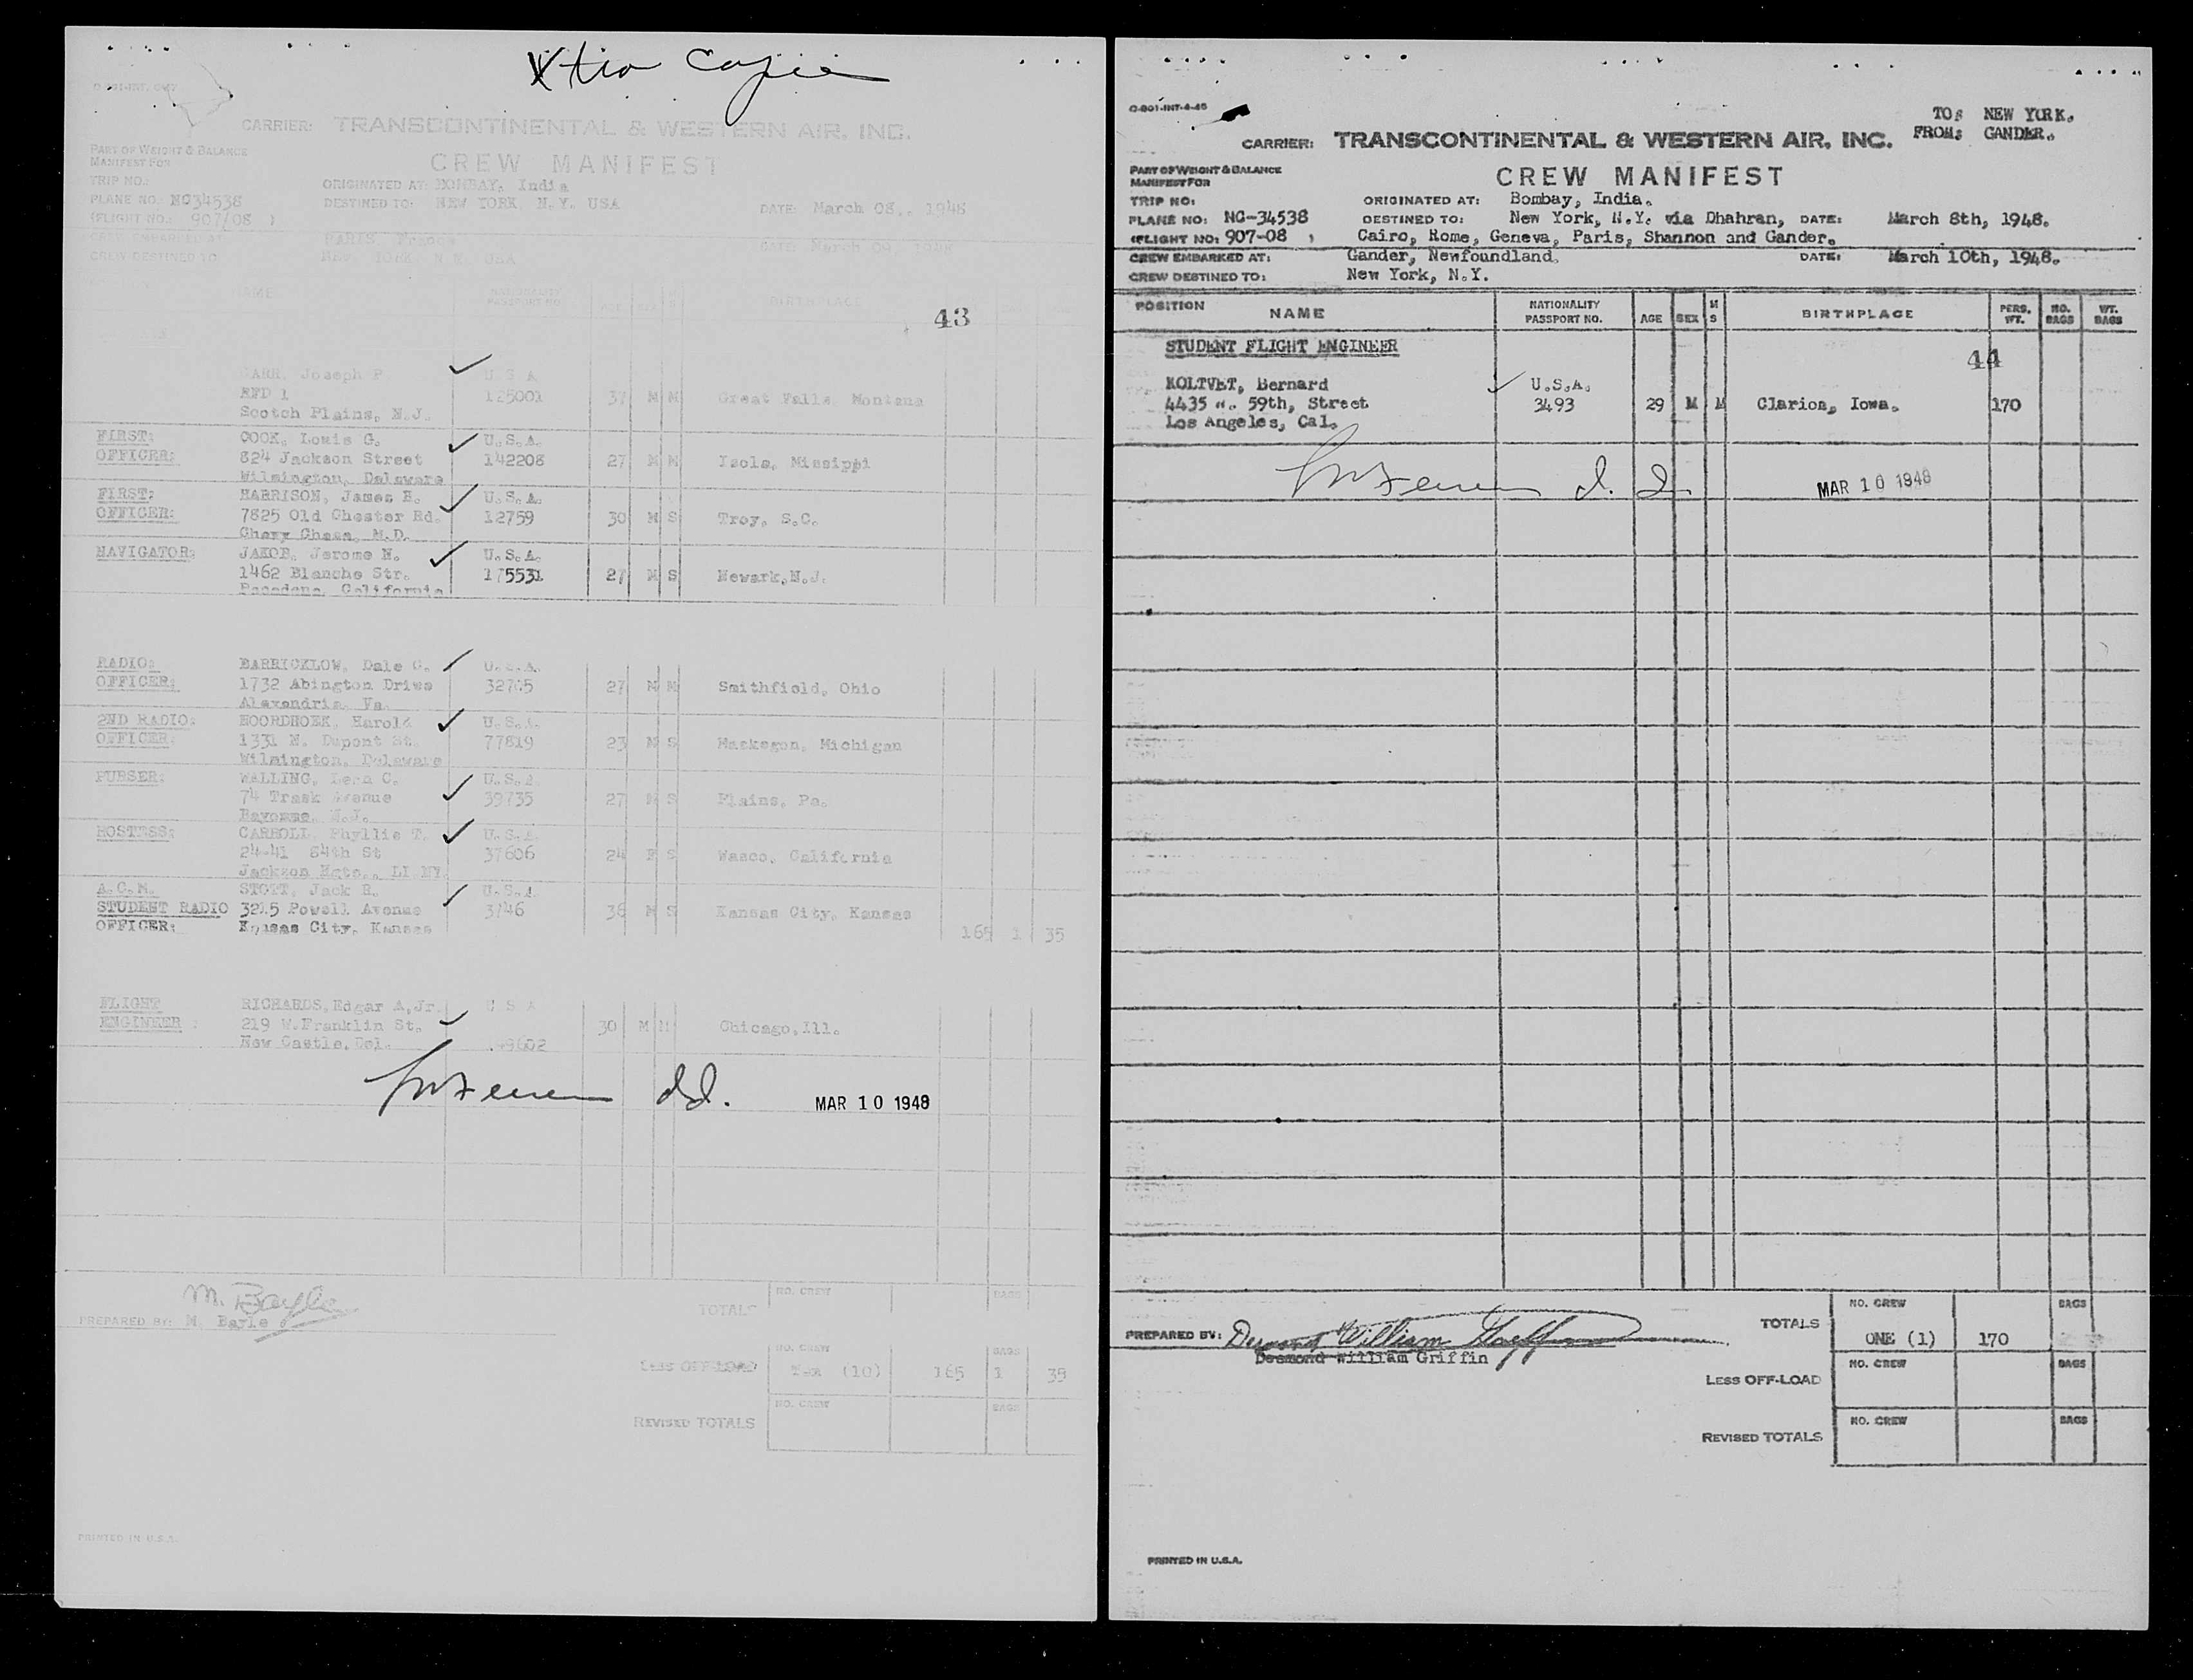 Xtra Copies
CARRIER: TRANSCONTINENTAL & WESTERN AIR, INC.
PART OF WEIGHT & BALANCE
MANIFEST FOR
CREW MANIFEST
TRIP NO.:
ORIGINATED AT: BOMBAY, India
PLANE NO: NC34538
DESTINED TO: NEW YORK, N.Y. USA
DATE: March 08., 1948
(FLIGHT NO.: 907/08 )
CREW EMBARKED AT
PARIS, France
DATE: March 09, 1948
CREW DESTINED TO
NEW YORK N.Y. USA
NAME
NATIONALITY
PASSPORT NO.
AGE SEX
BIRTHPLACE
43
CARR, Joseph P U S A
RFD 1 125001 37 M M Great Falls, Montana
Scotch Plains, N.J.
FIRST: COOK, Louis G. U.S.A.
OFFICER: 824 Jackson Street 142208 27 M M Isola, Missippi
Wilmington, Delaware
FIRST: HARRISON, James E. U.S.A.
OFFICER: 7825 Old Chester Rd. 12759 30 M S Troy, S.C.
Chevy Chase, M.D.
NAVIGATOR: JAKOB, Jerome N. U.S.A.
1462 Blanche Str. 175531 27 M S Newark,N.J.
Pasadena, California
RADIO: BARRICKLOW, Dale G. U.S.A.
OFFICER: 1732 Abington Drive 27 M M Smithfield, Ohio
Alexandria, Va.
2ND RADIO: NOORDHOEK, Harold U.S.A.
OFFICER: 1331 N. Dupont St. 77819 23 M S Muskegon, Michigan
Wilmington, Delaware
PURSER: WALLING, C. U.S.A.
74 Trask Avenue 39735 27 M S Plains, Pa.
Bayonne, N.J.
HOSTESS: CARROLL, Phyllis T. U.S.A.
24-41 84th St 37606 24 F S Wasco, California
Jackson Hgts., LI NY.
A.C.M. STOTT, Jack R. U.S.A.
STUDENT RADIO 3215 Powell Avenue 3746 36 M S Kansas City, Kansas
OFFICER: Kansas City, Kansas 165 1 35
FLIGHT RICHARDS,Edgar A,Jr. U S A
ENGINEER : 219 W.Franklin St. 30 M M Chicago,Ill.
New Castle,Del.
MAR 10 1948
M. Bayle
PREPARED BY: M. Bayle
TOTALS NO. CREW BAGS
LESS OFF-LOAD NO. CREW Ten (10) 165 BAGS 1 35
REVISED TOTALS NO. CREW BAGS
PRINTED IN U.S.A.
O-801-INT-4-46
TO: NEW YORK.
FROM: GANDER.
CARRIER: TRANSCONTINENTAL & WESTERN AIR, INC.
PART OF WEIGHT & BALANCE
MANIFEST FOR
CREW MANIFEST
TRIP NO:
ORIGINATED AT: Bombay, India.
PLANE NO: NC-34538
DESTINED TO: New York, N.Y. via Dhahran, DATE: March 8th, 1948.
(FLIGHT NO: 907-08 ) Cairo, Rome, Geneva, Paris, Shannon and Gander.
CREW EMBARKED AT: Gander, Newfoundland. DATE: March 10th, 1948.
CREW DESTINED TO: New York, N.Y.
POSITION NAME NATIONALITY PASSPORT NO. AGE SEX M S BIRTHPLACE PERS. WT. NO. BAGS WT. BAGS
STUDENT FLIGHT ENGINEER
44
KOLTVET, Bernard U.S.A.
4435 W. 59th, Street 3493 29 M M Clarion, Iowa. 170
Los Angeles, Cal.
MAR 10 1948
TOTALS NO. CREW BAGS
ONE (1) 170
PREPARED BY: Desmond William Griffin
Desmond William Griffin
LESS OFF-LOAD NO. CREW BAGS
REVISED TOTALS NO. CREW BAGS
PRINTED IN U.S.A.